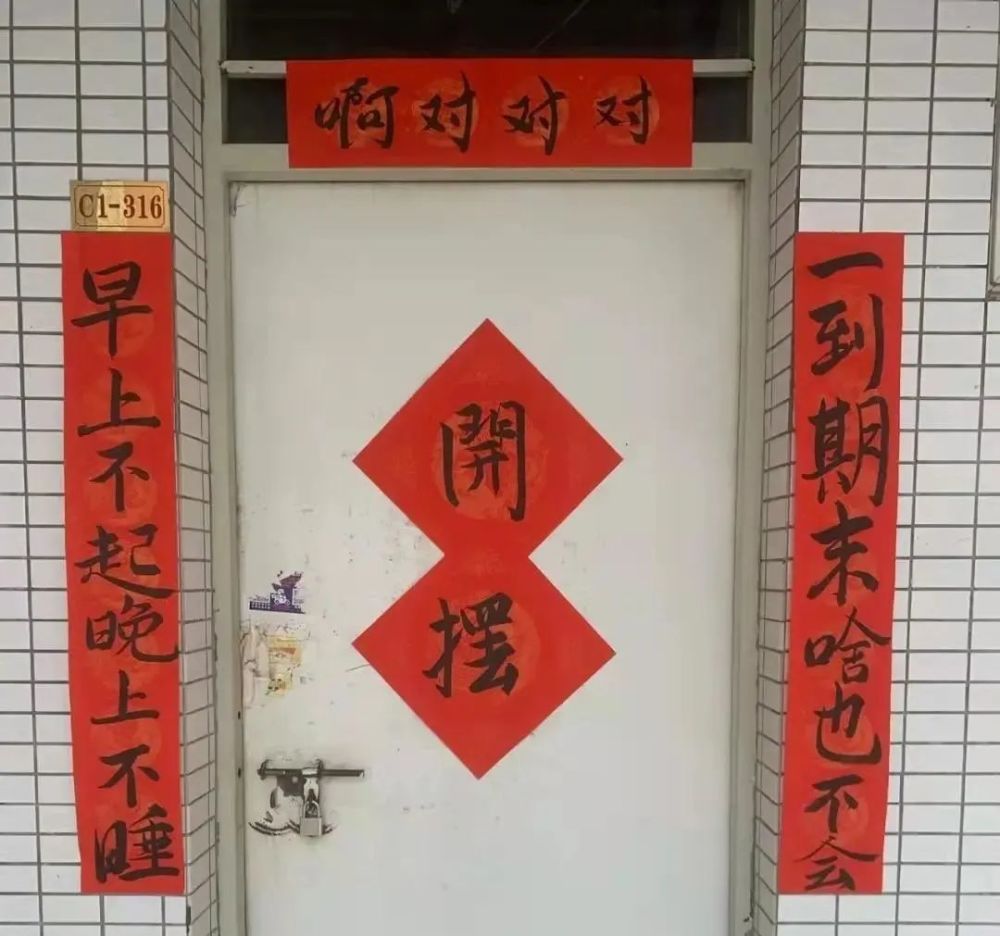 啊对对对
C1-316
早上不起晚上不睡
一到期末啥也不会
開
摆